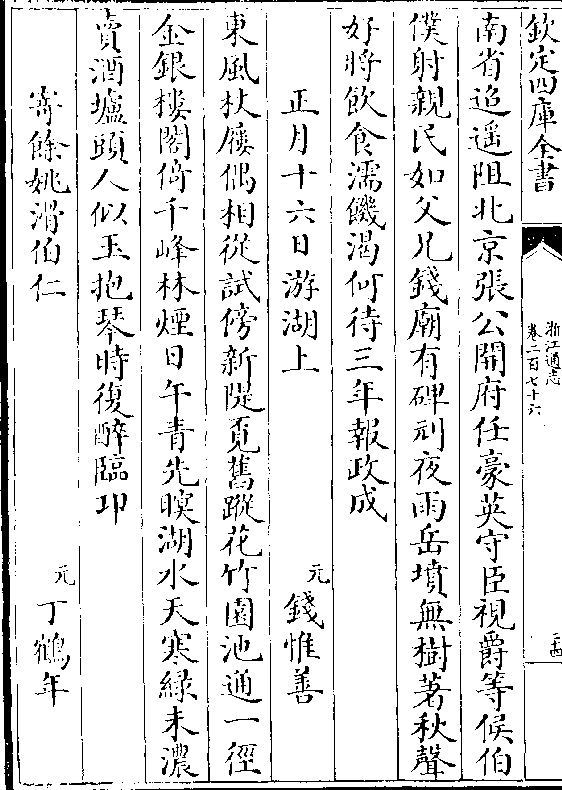 欽定四庫全書
浙江通志
卷二百七十六
二十四
南省迢遥阻北京張公開府任豪英守臣視爵等侯伯
僕射親民如父兄錢廟有碑刓夜雨岳墳無樹著秋聲
好將飲食濡饑渴何待三年報政成
正月十六日游湖上
元 錢惟善
東風杖屨偶相從試傍新隄覓舊蹤花竹園池通一徑
金銀樓閣倚千峰林煙日午青先暝湖水天寒緑未濃
賣酒壚頭人似玉抱琴時復醉臨卭
寄餘姚滑伯仁
元 丁鶴年